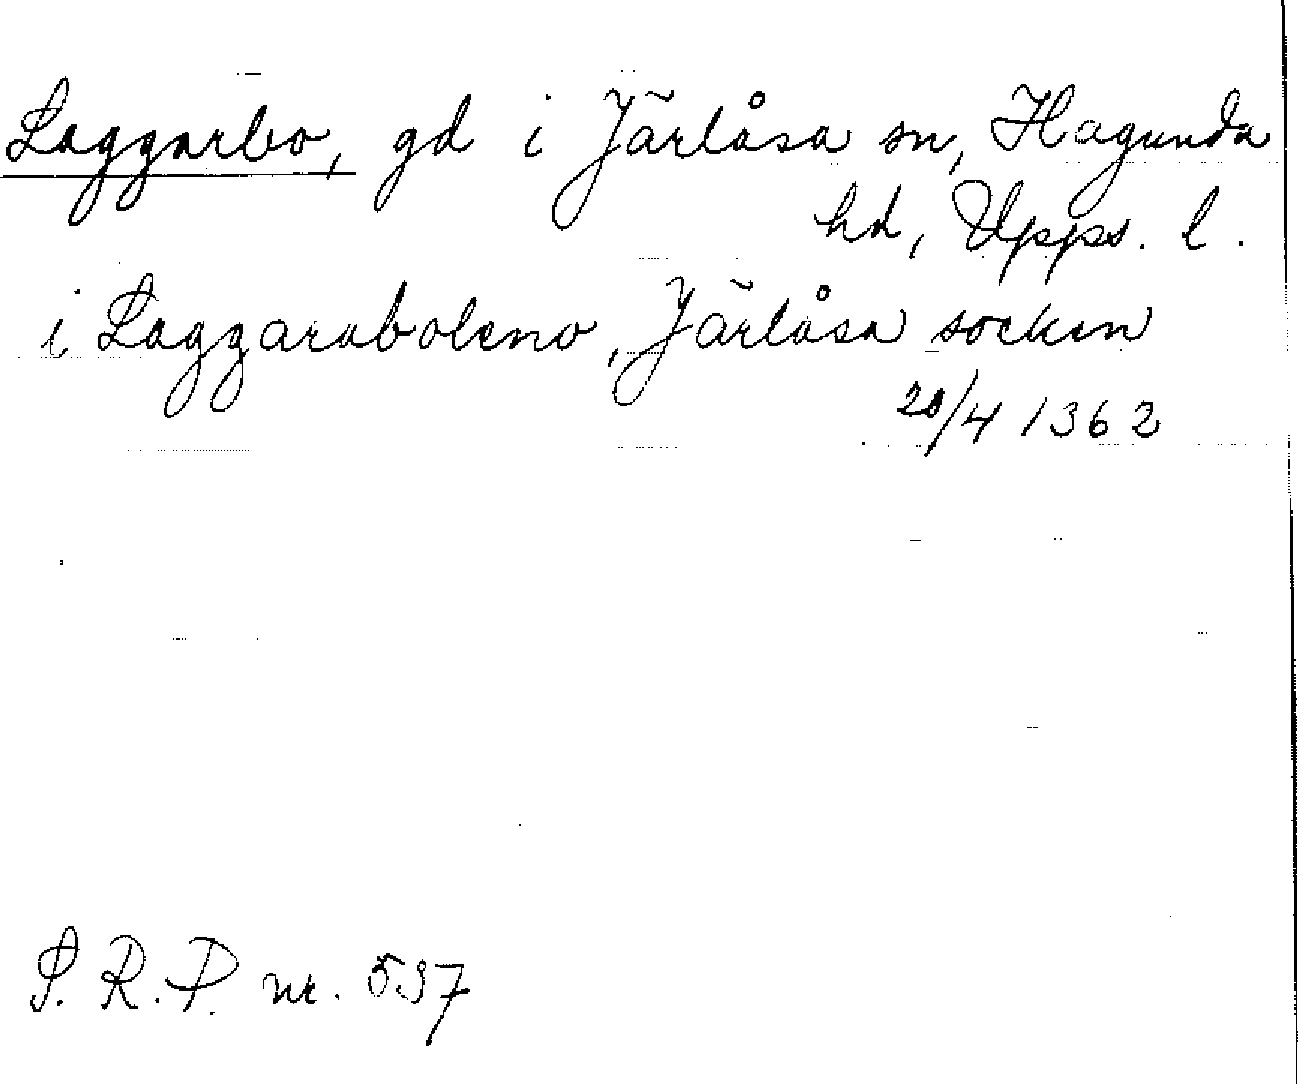 Laggarbo, gd i Järlåsa sn, Hagunda
hd, Upps. l.
i Laggaraboleno, Järlåsa socken
20/4 1362
S. R. P. nr. 537